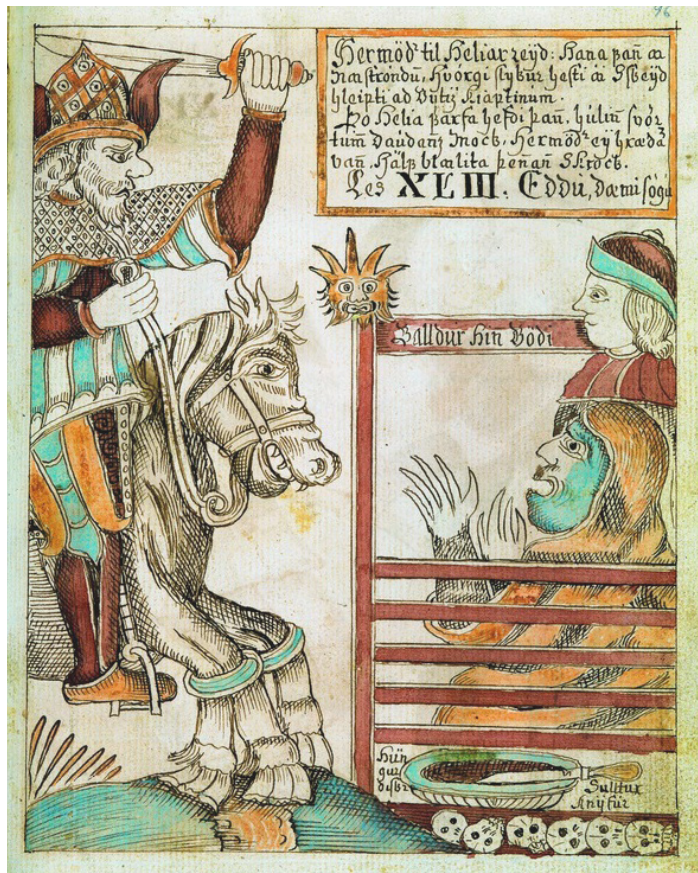 96
Hermöd til Heliar reyd: Hana þañ a
nastrondu, Hvörgi slybur hesti a
hleipti ad Kiaptinum.
Þo Helia þarfa hefdi þañ, huliñ svör
tum daudans Mock, Hermöd ey hræda
vañ, Hals þeñañ
Les XLIII. Eddu, dæmi sögu
Balldur hin Gödi
Hün
gur
diskr
Sulltur
knyfur